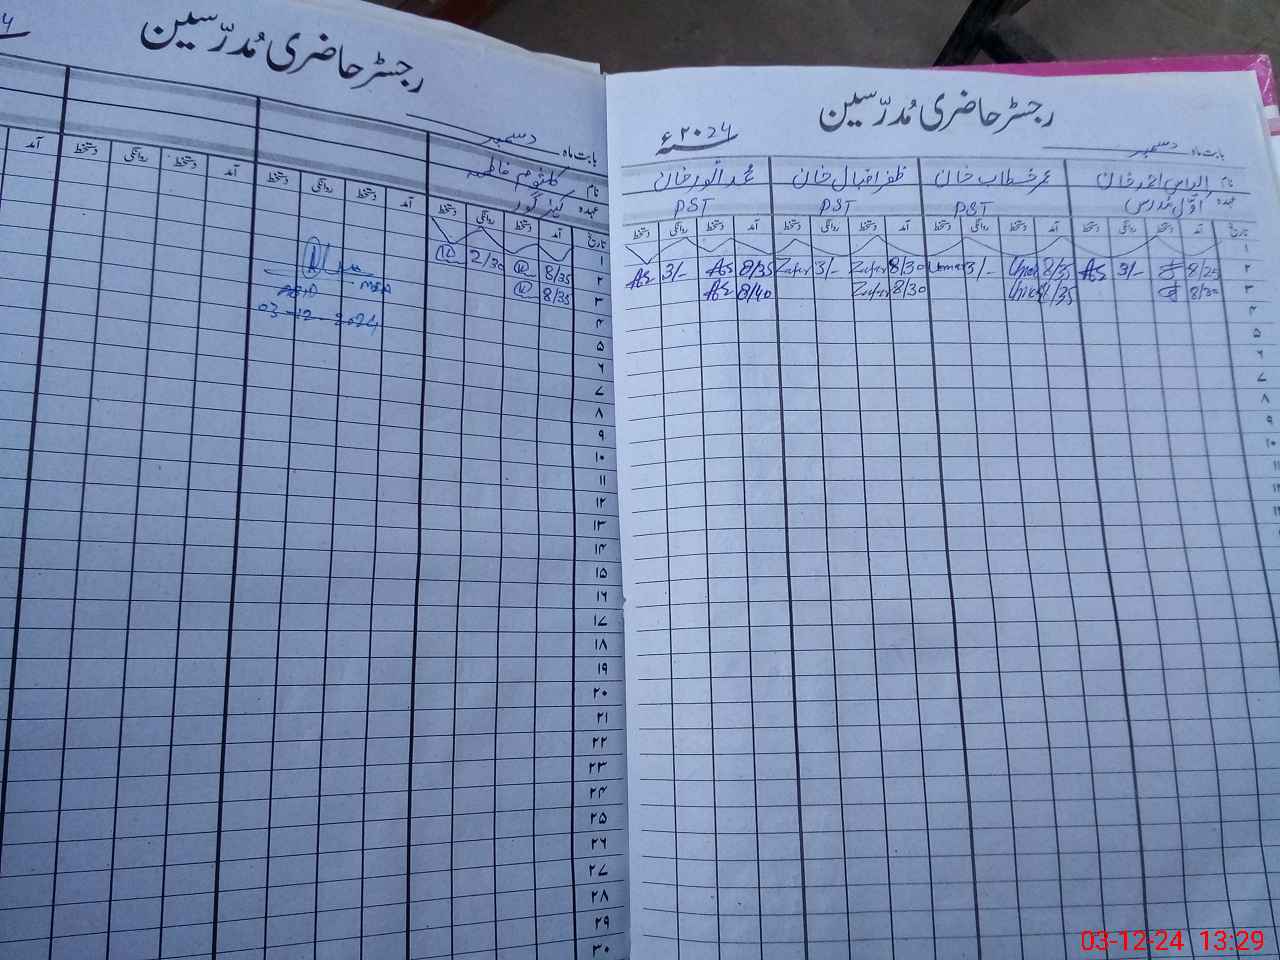 رجسٹر حاضری مُدرّسین
بابت ماہ دسمبر ۲۰24ء
نام الیاس احمد خان عمر خطاب خان ظفر اقبال خان محمد انور خان
عہدہ اوّل مدرس PST PST PST
تاریخ آمد دستخط روانگی دستخط آمد دستخط روانگی دستخط آمد دستخط روانگی دستخط آمد دستخط روانگی دستخط
۱
۲ 8/25 3/- AS 8/35 Umar 3/- Umar 8/30 Zafar 3/- Zafar 8/35 AS 3/- AS
۳ 8/30 8/35 Umar 8/30 Zafar 8/40 AS
۴
۵
۶
۷
۸
۹
۱۰
۱۱
رجسٹر حاضری مُدرّسین
بابت ماہ دسمبر
نام کلثوم فاطمہ
عہدہ
تاریخ آمد دستخط روانگی دستخط آمد دستخط روانگی دستخط آمد دستخط روانگی دستخط آمد
۱
۲ 8/35 2/30
۳ 8/35
MEA
03-12-2024
۴
۵
۶
۷
۸
۹
۱۰
۱۱
۱۲
۱۳
۱۴
۱۵
۱۶
۱۷
۱۸
۱۹
۲۰
۲۱
۲۲
۲۳
۲۴
۲۵
۲۶
۲۷
۲۸
۲۹
۳۰
03-12-24 13:29